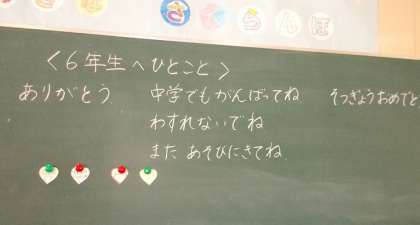 ＜６年生へひとこと＞
ありがとう
中学でもがんばってね
わすれないでね
また あそびにきてね
そつぎょうおめでと